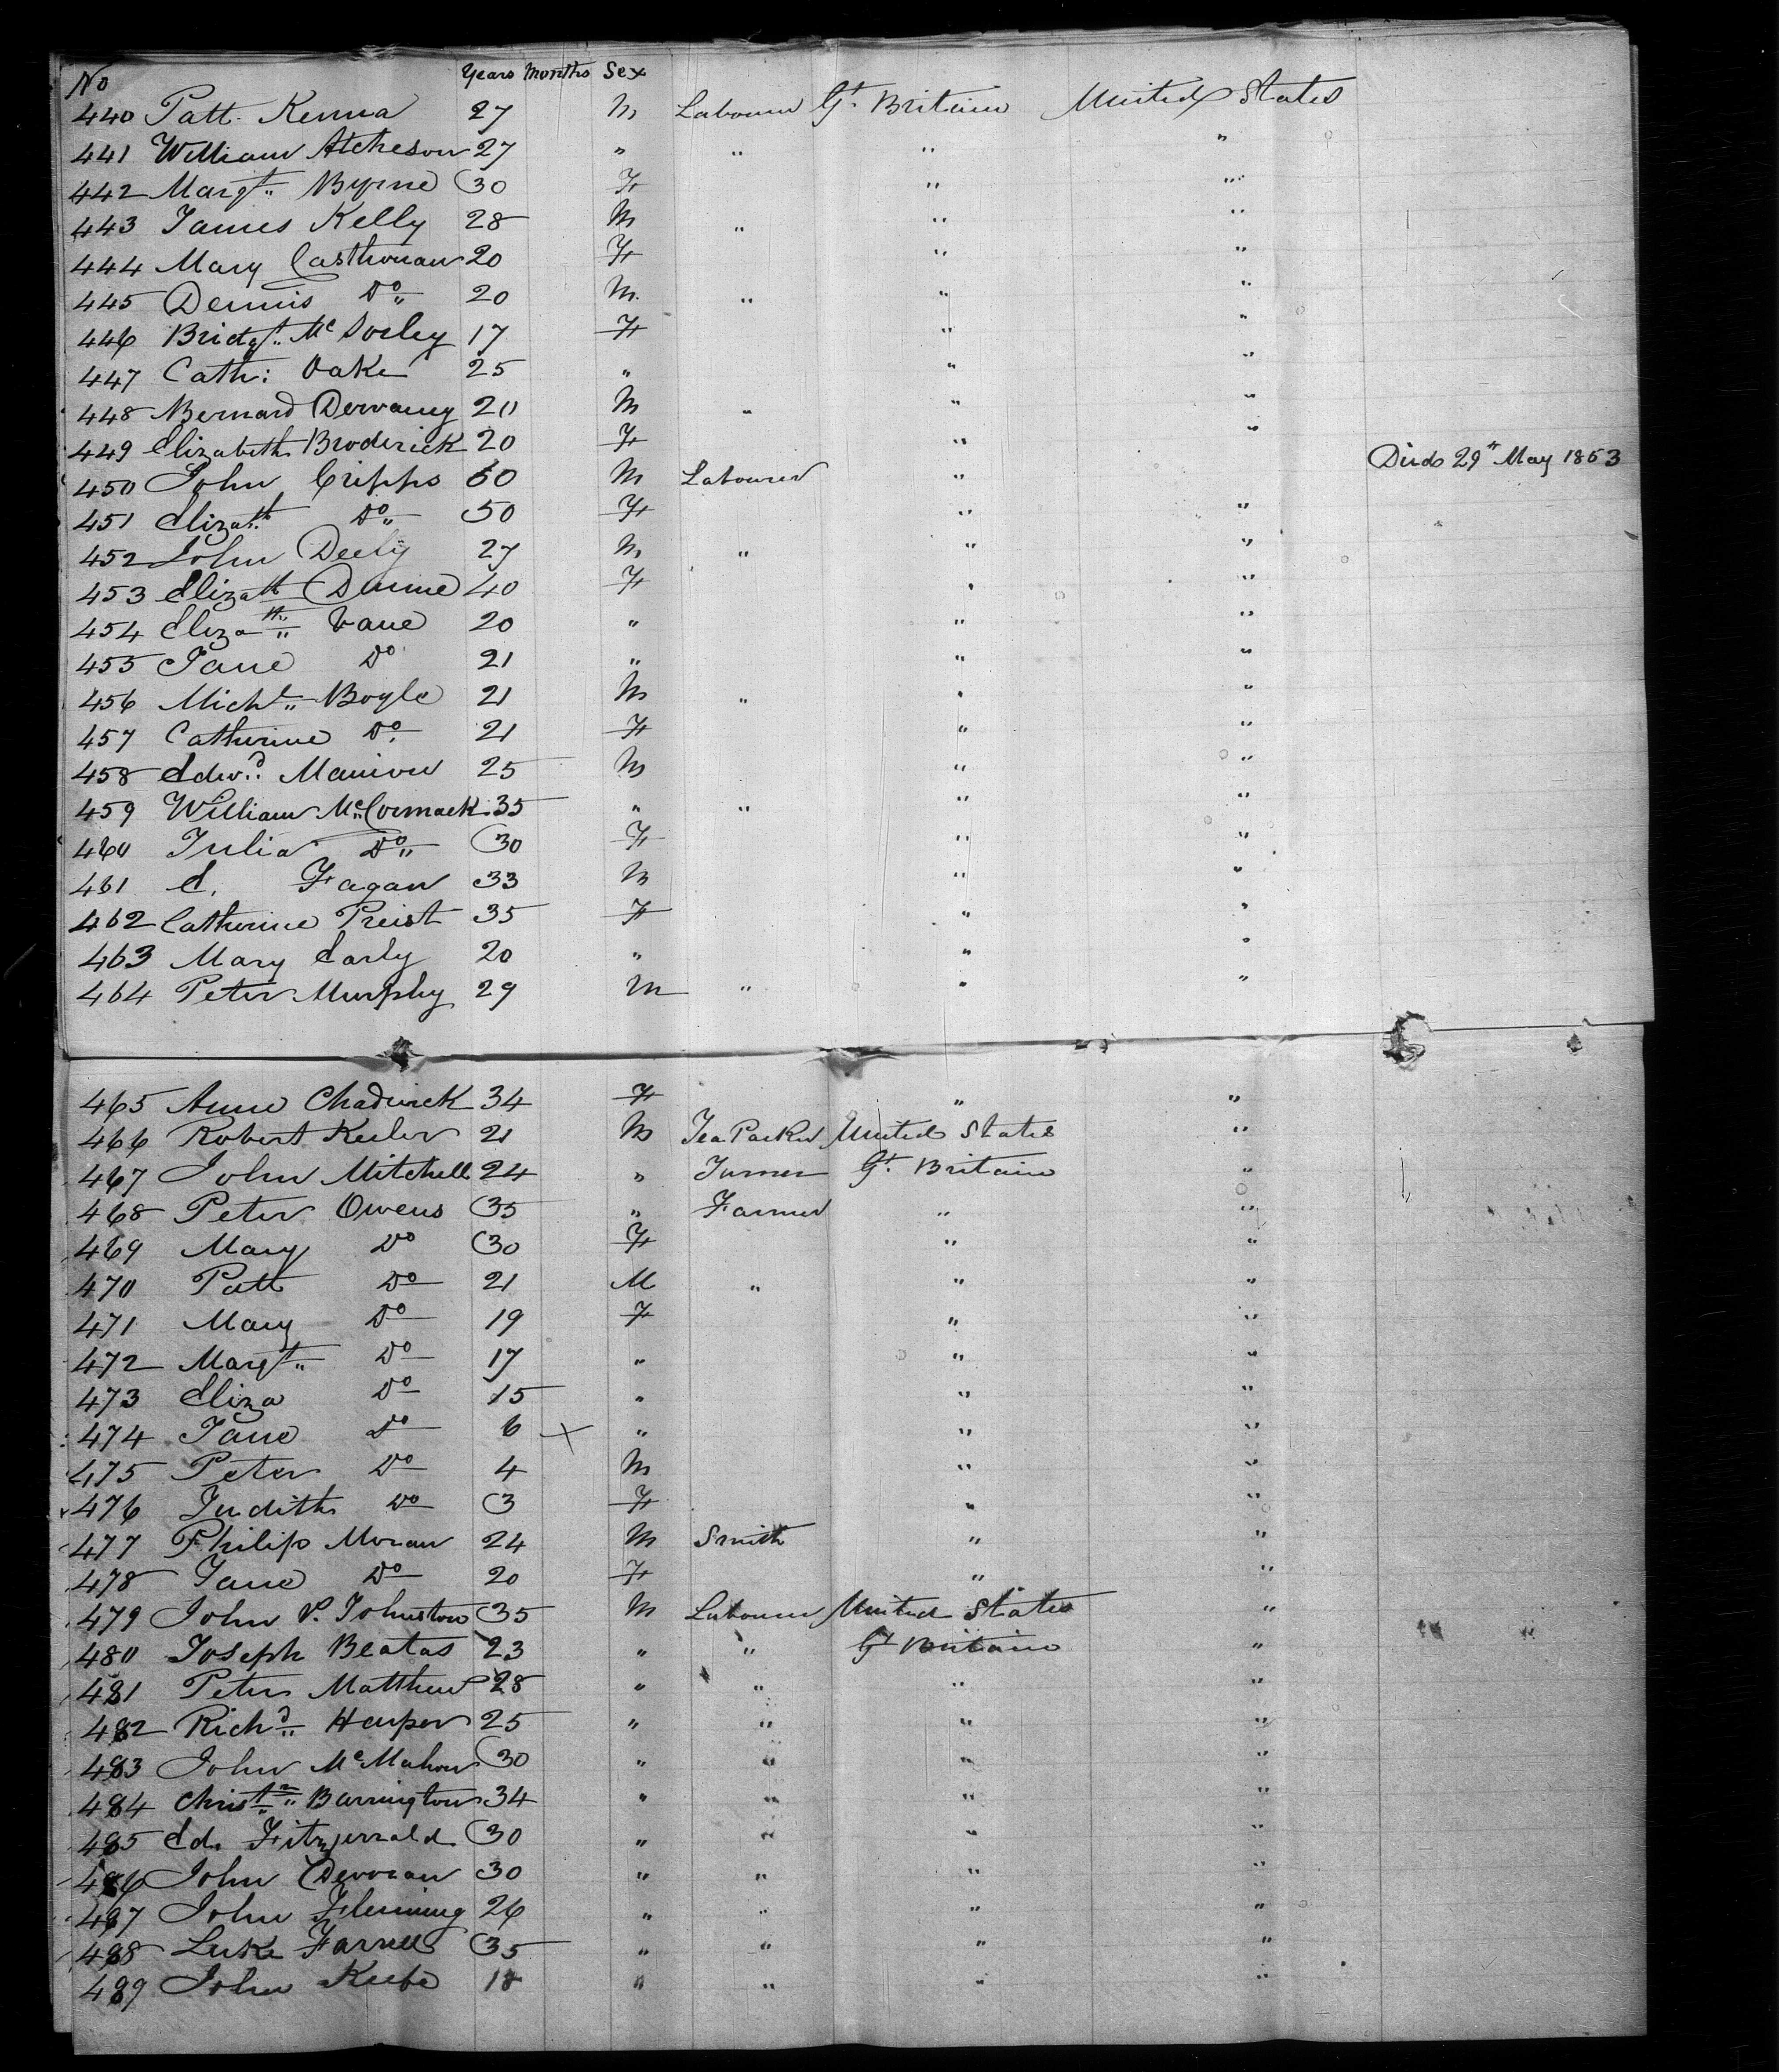 No Years Months Sex
440 Patt. Kenna 27 M Labourer Gt. Britain United States
441 William Atcheson 27 " " " "
442 Margt. Byrne 30 F " "
443 James Kelly 28 M " " "
444 Mary Casthonan 20 F " "
445 Dennis Do 20 M. " " "
446 Bridgt. Mc Sorley 17 F " "
447 Cath: Oake 25 " " "
448 Bernard Dervaney 20 M " " "
449 Elizabeth Broderick 20 F " "
450 John Cripps 60 M Labourer " Died 29th May 1853
451 Elizath Do 50 F " "
452 John Deely 27 M " " "
453 Elizath Dunne 40 F " "
454 Elizath Vane 20 " " "
455 Jane Do 21 " " "
456 Michl. Boyle 21 M " " "
457 Catherine Do. 21 F " "
458 Edwd. Manion 25 M " "
459 William McCormack 35 " " " "
460 Julia Do 30 F " "
461 E. Fagan 33 M " "
462 Catherine Preist 35 F " "
463 Mary Early 20 " " "
464 Peter Murphy 29 M " " "
465 Anne Chadwick 34 F " "
466 Robert Keeler 21 M Tea Packer United States "
467 John Mitchell 24 " Turner Gt. Britain "
468 Peter Owens 35 " Farmer " "
469 Mary Do 30 F " "
470 Patt Do 21 M " " "
471 Mary Do 19 F " "
472 Margt. Do 17 " " "
473 Eliza Do 15 " " "
474 Jane Do 6 x " " "
475 Peter Do 4 M " "
476 Judith Do 3 F " "
477 Philip Moran 24 M Smith " "
478 Jane Do 20 F " "
479 John P. Johnston 35 M Labourer United States "
480 Joseph Beatas 23 " " Gt Britain "
481 Peter Matthew 28 " " " "
482 Richd. Harper 25 " " " "
483 John Mc Mahon 30 " " " "
484 Christn. Barrington 34 " " " "
485 Ed. Fitzjerrald 30 " " " "
486 John Devoran 30 " " " "
487 John Flemming 26 " " " "
488 Luke Farrell 35 " " " "
489 John Keefe 18 " " " "